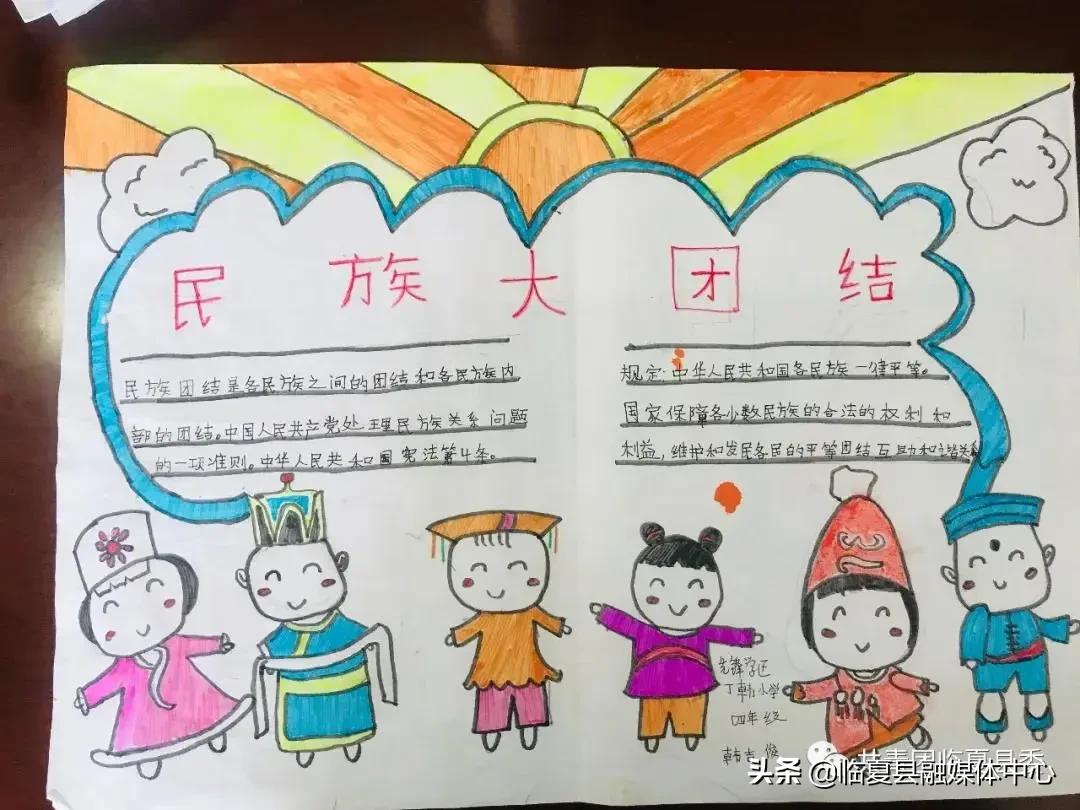 民族大团结
民族团结是各民族之间的团结和各民族内
部的团结。中国人民共产党处理民族关系问题
的一项准则。中华人民共和国宪法第4条。
规定:中华人民共和国各民族一律平等。
国家保障各少数民族的合法的权利和
利益,维护和发民各民的平等团结互助和谐关系
先锋学区
丁韩小学
四年级
韩吉俊
共青团临夏县委
头条 @临夏县融媒体中心